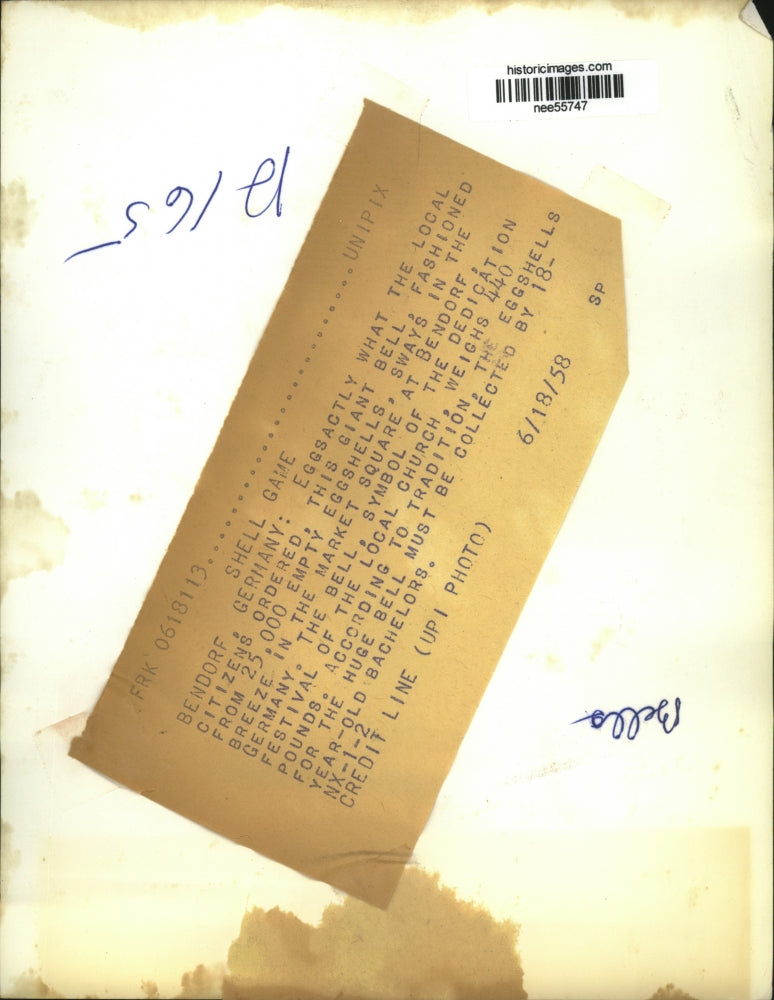 historicimages.com
nee55747
FRK 0618113....................UNIPIX
SHELL GAME
BENDORF, GERMANY: EGGSACTLY WHAT THE LOCAL
CITIZENS ORDERED, THIS GIANT BELL, FASHIONED
FROM 25,000 EMPTY EGGSHELLS, SWAYS IN THE
BREEZE IN THE MARKET SQUARE AT BENDORF,
GERMANY. THE BELL, SYMBOL OF THE DEDICATION
FESTIVAL OF THE LOCAL CHURCH, WEIGHS 440
POUNDS. ACCORDING TO TRADITION, THE EGGSHELLS
FOR THE HUGE BELL MUST BE COLLECTED BY 18-
YEAR-OLD BACHELORS.
NX-1-2
CREDIT LINE (UPI PHOTO) 6/18/58 SP
Bells